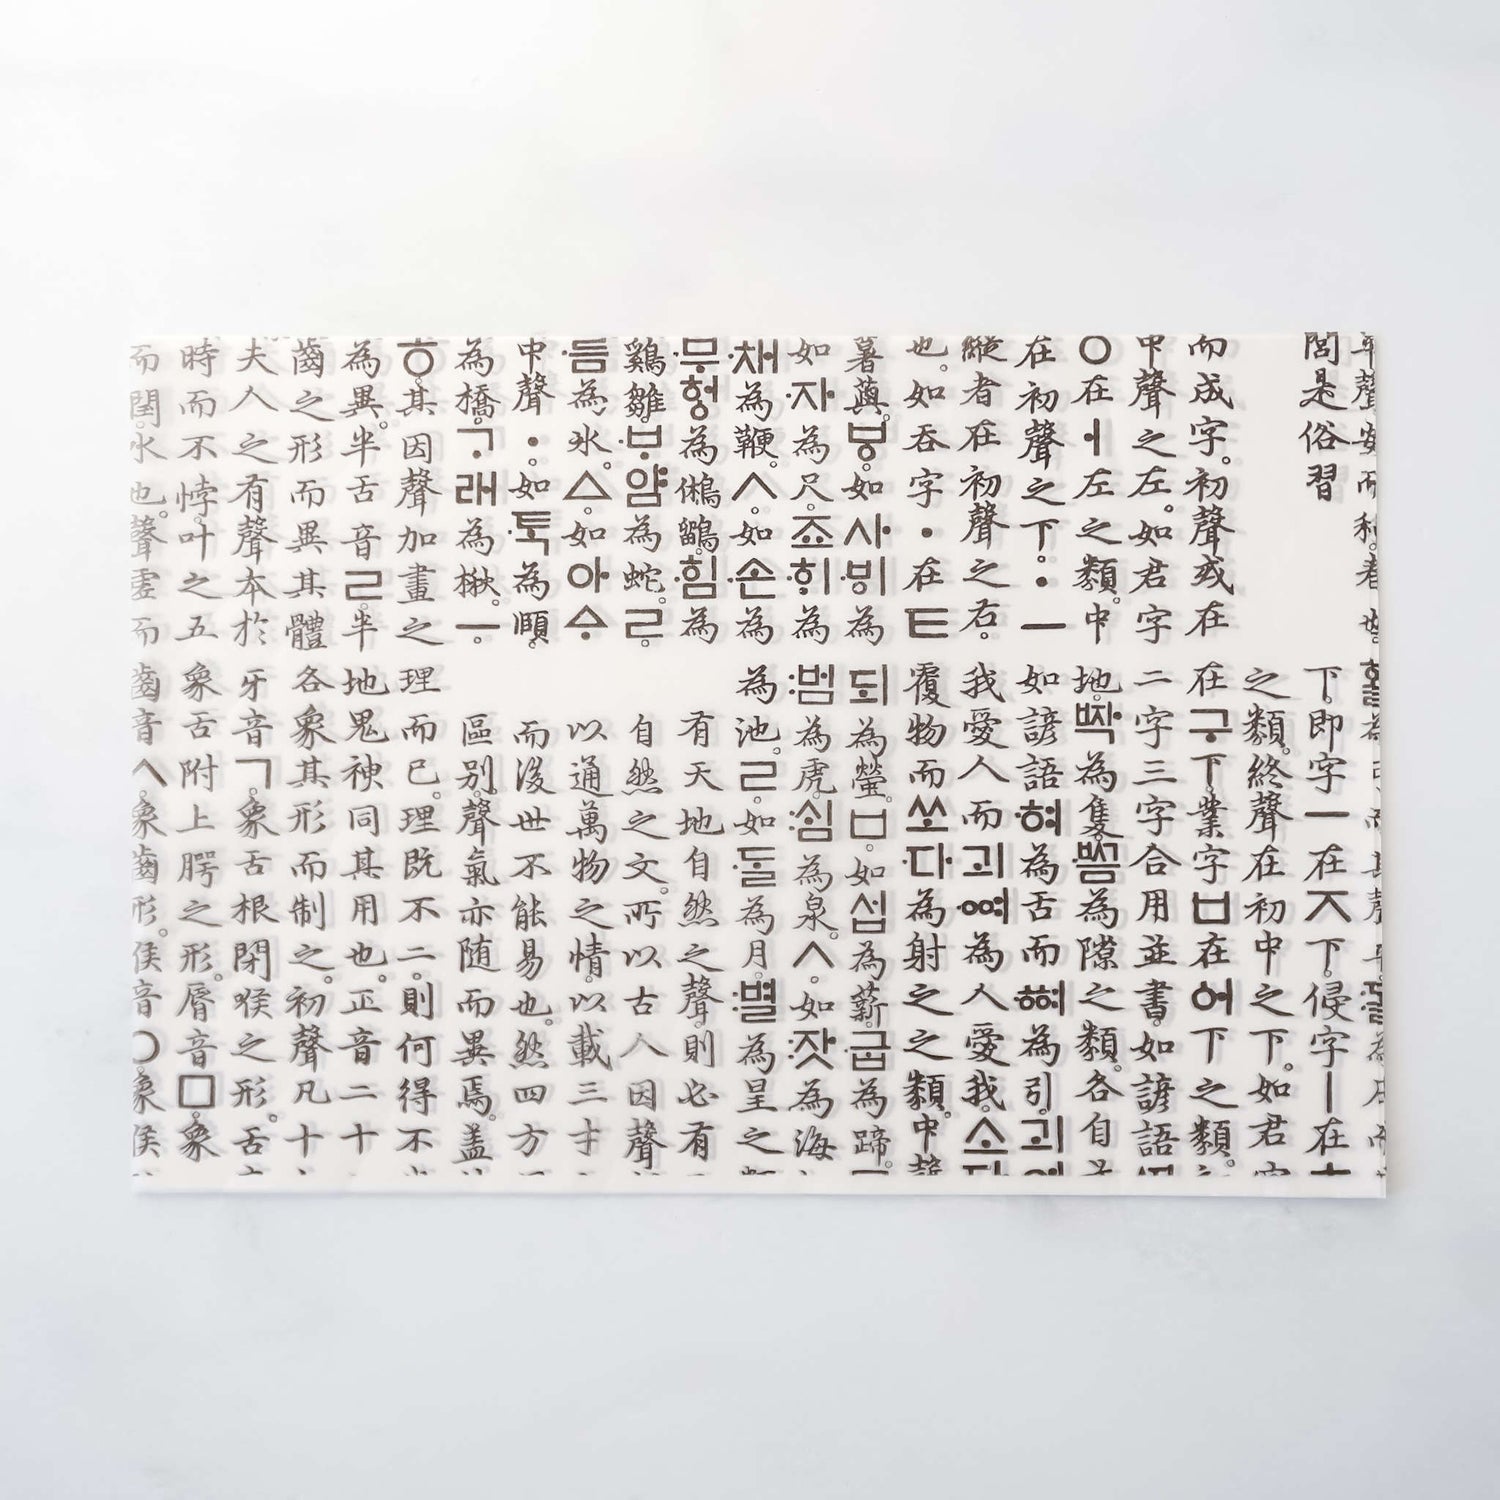 聲安而和。春
閭是俗習
而成字。初聲或在
中聲之左。如君字
ㅇ在ㅓ左之類。中
在初聲之下。ㆍㅡ
縱者在初聲之右。
也。如呑字ㆍ在ㅌ
薯藇。ㅸ。如사ᄫᅵ為
如·자為尺。죠ᄒᆡ為
·채為鞭。ㅅ。如·손為
헝為鵂鶹。·힘為
鷄雛。·ᄇᆞ얌為蛇。ㄹ。
름為氷。ㅿ。如아ᅀᆞ
中聲ㆍ。如·ᄐᆞᆨ為頤
為橋。·ᄀᆞ래為楸。ㅡ。
ㆆ。其因聲加畫之
為異。半舌音ㄹ。半
齒之形而異其體
夫人之有聲本於
時而不悖。叶之五
而閏。水也。聲虛而
下。即字ㅡ在ㅈ下。侵字ㅣ在
之類。終聲在初中之下。如君
在구下。業字ㅂ在어下之類。
二字三字合用並書。如諺語
地。ᄧᅡᆨ為隻。ᄢᅳᆷ為隙之類。各自
如諺語·혀為舌而·ᅘᅧ為引。괴
我愛人而괴·ᅇᅧ為人愛我。소
覆物而쏘·다為射之之類。中
되為螢。ㅁ。如섭為薪。·굽為蹄。
:범為虎。:심為泉。ㅅ。如:잣為海
為池。ㄹ。如·ᄃᆞᆯ為月。:별為星之
有天地自然之聲。則必有
自然之文。所以古人因聲
以通萬物之情。以載三才
而後世不能易也。然四方
區別。聲氣亦隨而異焉。盖
理而已。理既不二。則何得不
地鬼神同其用也。正音二十
各象其形而制之。初聲凡十
牙音ㄱ。象舌根閉喉之形。舌
象舌附上腭之形。脣音ㅁ。象
齒音ㅅ。象齒形。喉音ㅇ。象喉